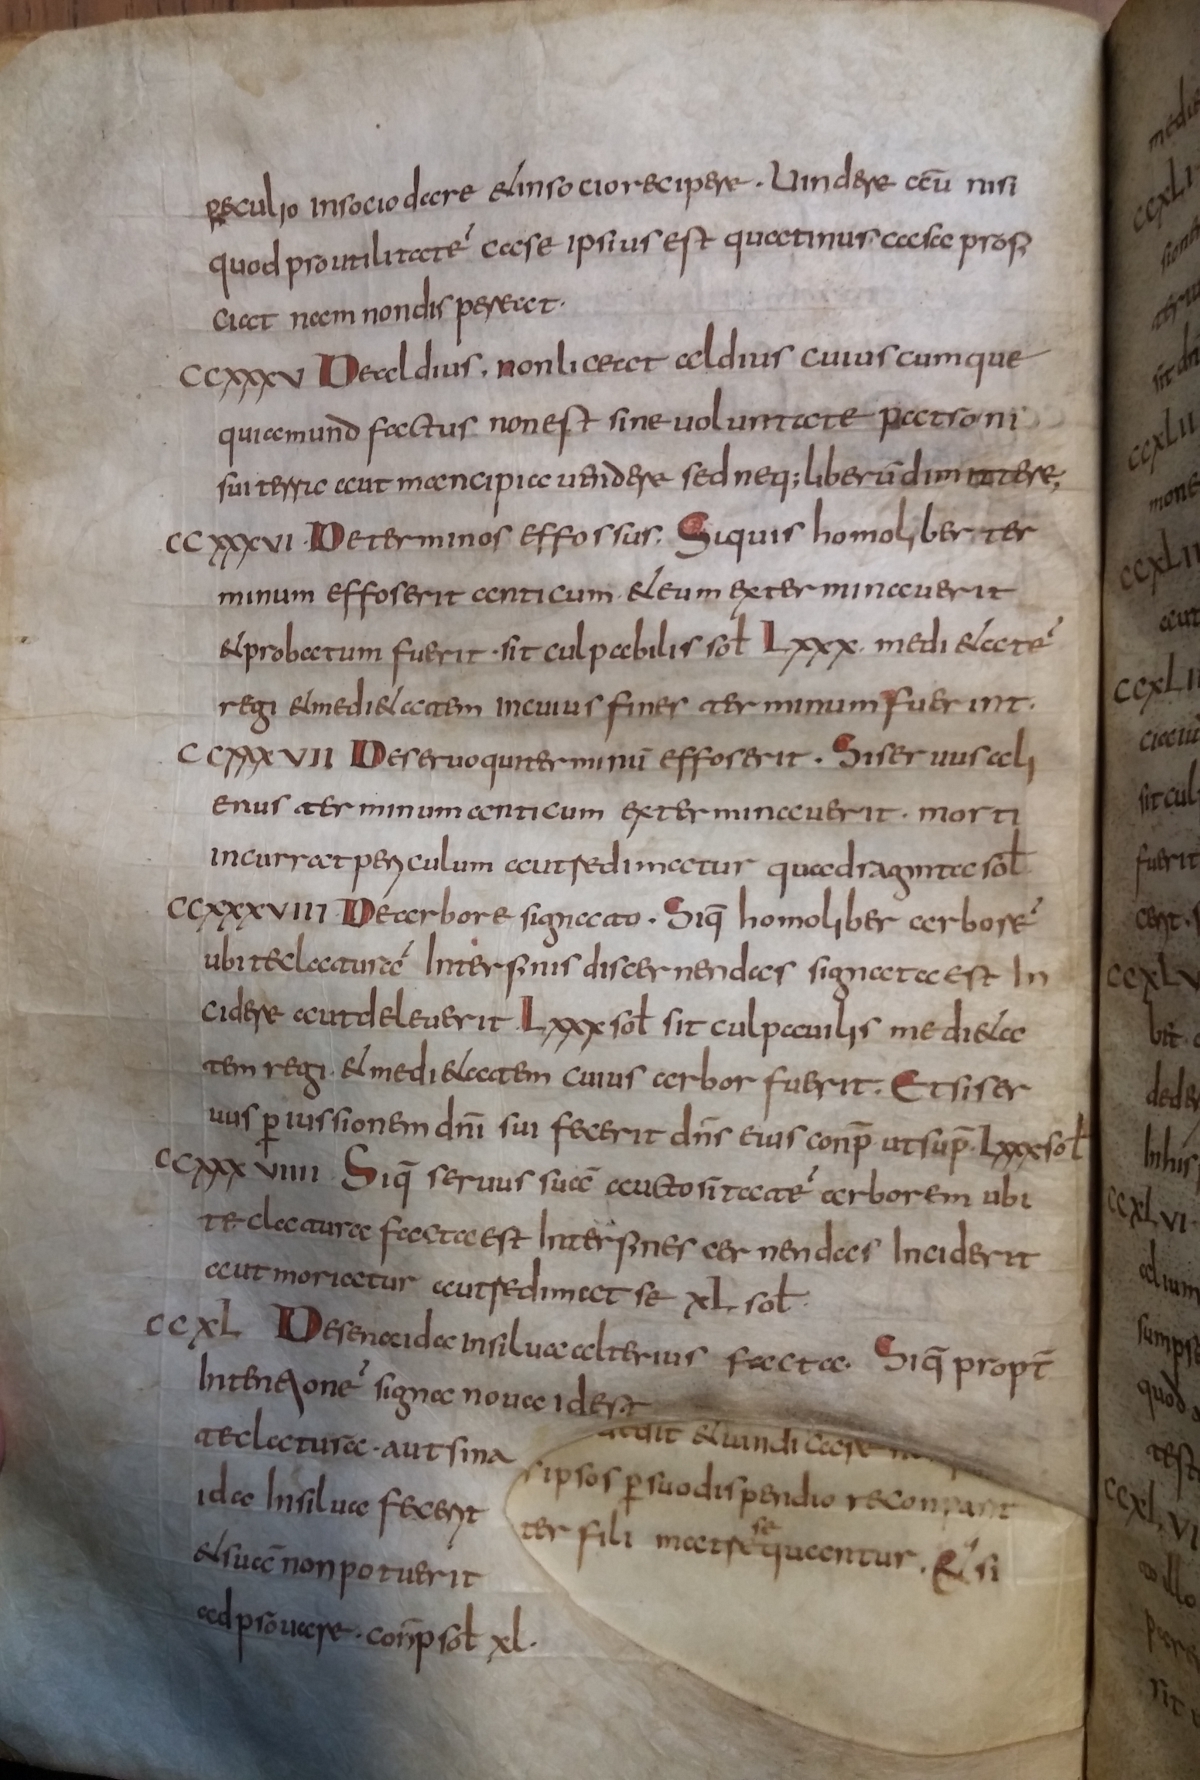 peculio insocio dare et inso cio recipere. Uindere aū nisi
quod pro utilitatē case ipsius est quatinus casa profi
ciat nam non dispereat.
CCXXXV De aldius. non liceat aldius cuius cumque
qui amund factus non est sine uoluntate patroni
sui terra aut mancipia uendere sed neq; liberū dimittere;
CCXXXVI De terminos effossus. Si quis homo liber ter
minum effoserit anticum et eum exterminauerit
et probatum fuerit sit culpabilis sol LXXX. medietatē
regi et medietatem in cuius fines terminum fuerint.
CCXXXVII De seruo qui terminū effoserit. Si seruus ali
enus terminum anticum exterminauerit. morti
incurrat periculum aut redimatur quadraginta sol
CCXXXVIII De arbore signato. Siq̄ homo liber arborē
ubi teclaturā Inter finis discernendas signata est In
cidere aut deleuerit LXXX sol sit culpauilis medieta
tem regi et medietatem cuius arbor fuerit. Et si ser
uus p̄ iussionem dn̄i sui fecerit dn̄s eius conp̄ ut sup̄ LXXX sol
CCXXXVIIII Siq̄ seruus suā auctositatē arborem ubi
teclatura facta est Inter fines cernendas Inciderit
aut moriatur aut redimat se XL sol.
CCXL De senaida in silua alterius facta. Siq̄ propt̄
Intentionē signa noua id est
teclaturā. aut sina
ida In silua fecerit
et suā non potuerit
ad prouare. conp̄ sol xl.
sipsos p̄ suo dispendio reconpant
ter fili mat se quantur. Et si